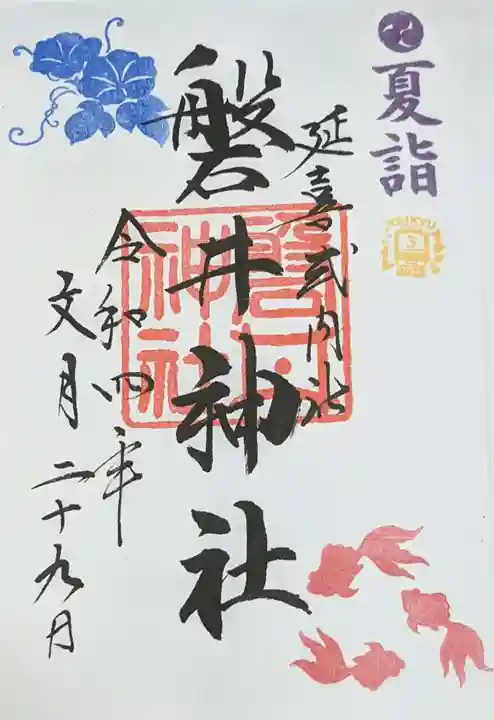 夏詣
KEIKYU
3
延喜式内社
磐井神社
令和四年
文月二十九日